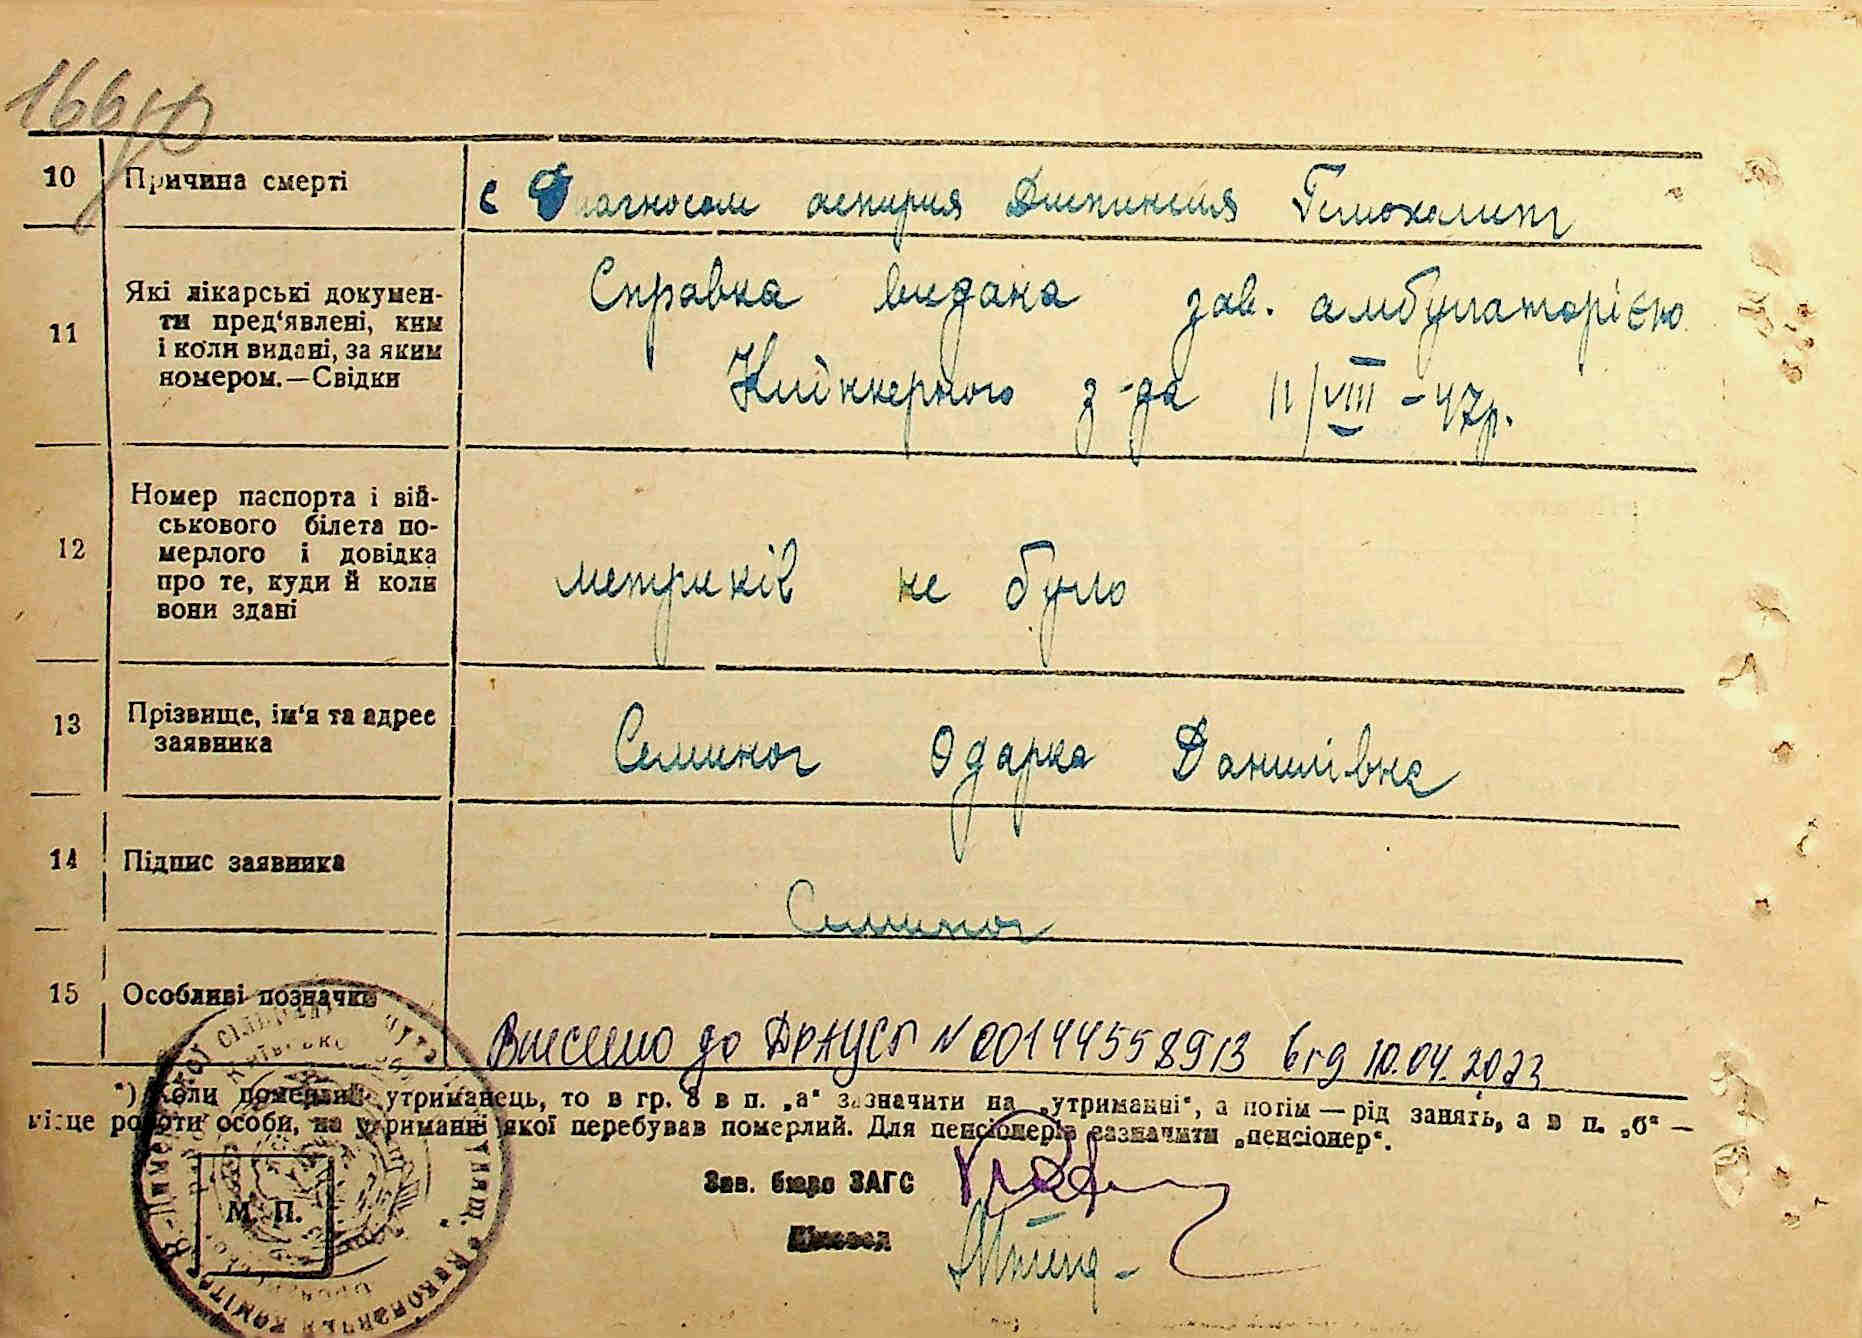 10 Причина смерті с Диагносом Диспинсия
11 Які лікарські докумен-
ти пред'явлені, ким
і коли видані, за яким
номером.—Свідки
Справка видана зав. амбулаторією
з-да 11/VIII-47р.
12 Номер паспорта і вій-
ськового білета по-
мерлого і довідка
про те, куди й коли
вони здані
метриків не було
13 Прізвище, ім'я та адрес
заявника
Семиног Одарка Данилівна
14 Підпис заявника
Семиног
15 Особливі позначки
Внесено до ДРАЦСГ N 00144558913 від 10.04.2023
*) Коли померлий утриманець, то в гр. 8 в п. „а“ зазначити на „утриманні“, а потім — рід занять, а в п. „б“ —
місце роботи особи, на утриманні якої перебував померлий. Для пенсіонерів зазначити „пенсіонер“.
Зав. бюро ЗАГС
М. П.
Діловод